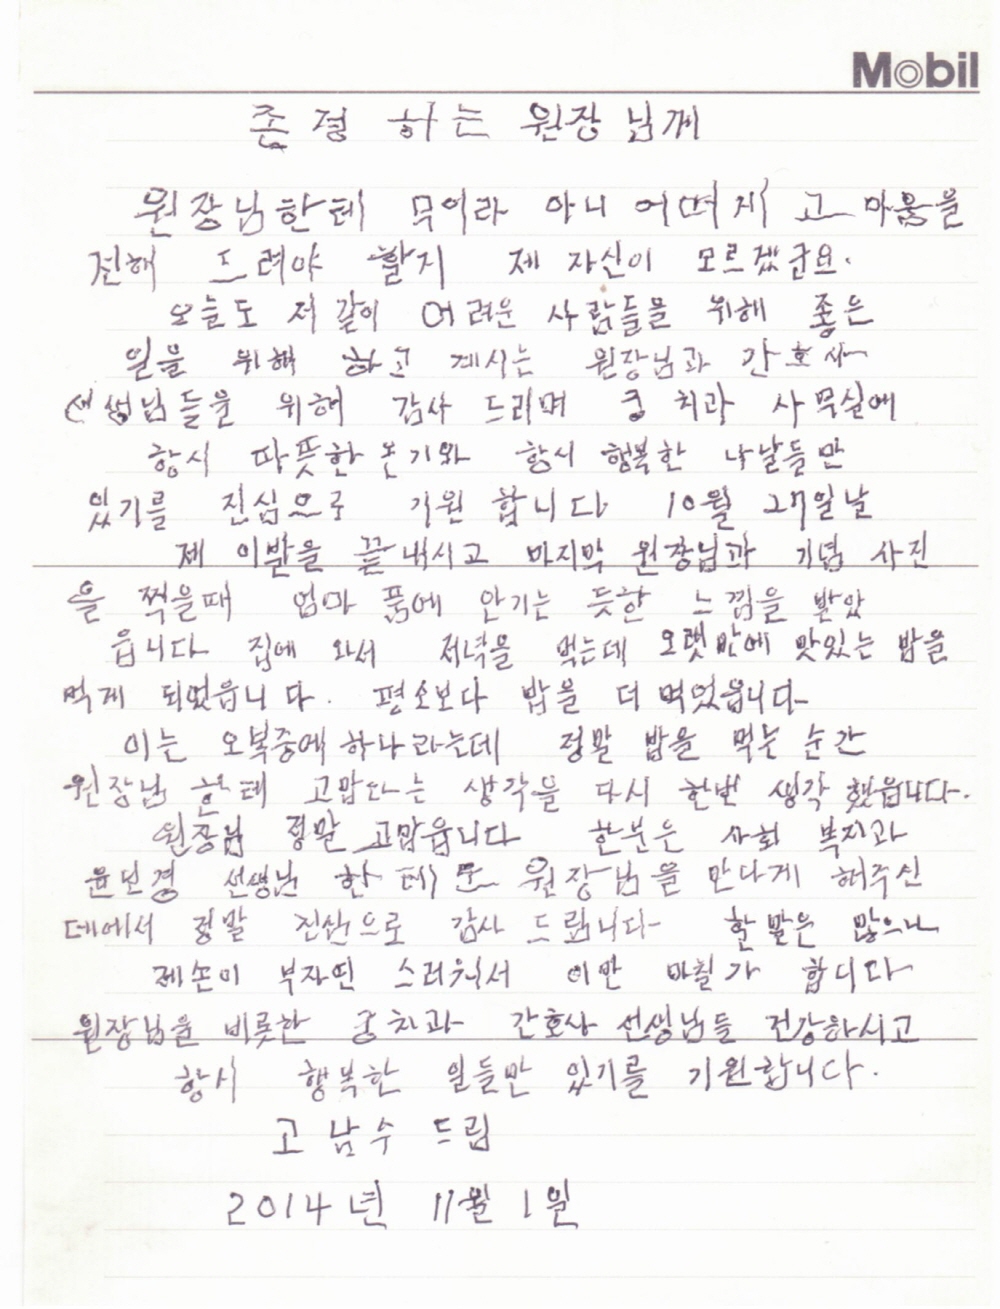 Mobil
존경 하는 원장님께
원장님한테 무어라 아니 어떠게 고마움을
전해 드려야 할지 제 자신이 모르겠군요.
오늘도 저 같이 어려운 사람들을 위해 좋은
일을 위해 하고 계시는 원장님과 간호사
선생님들을 위해 감사 드리며 궁 치과 사무실에
항시 따뜻한 온기와 항시 행복한 나날들만
있기를 진심으로 기원 합니다 10월 27일날
제 이빨을 끝내시고 마지막 원장님과 기념 사진
을 찍을때 엄마 품에 안기는 듯한 느낌을 받았
읍니다 집에 와서 저녁을 먹는데 오랫만에 맛있는 밥을
먹게 되었읍니다. 평소보다 밥을 더 먹었읍니다
이는 오복중에 하나라는데 정말 밥을 먹는 순간
원장님 한테 고맙다는 생각을 다시 한번 생각 했읍니다.
원장님 정말 고맙읍니다 한분은 사회 복지과
윤민경 선생님 한테도 원장님을 만나게 해주신
데에서 정말 진심으로 감사 드립니다 할 말은 많으나
제손이 부자연 스러워서 이만 마칠가 합니다
원장님을 비롯한 궁치과 간호사 선생님들 건강하시고
항시 행복한 일들만 있기를 기원합니다.
고남수 드림
2014년 11월 1일